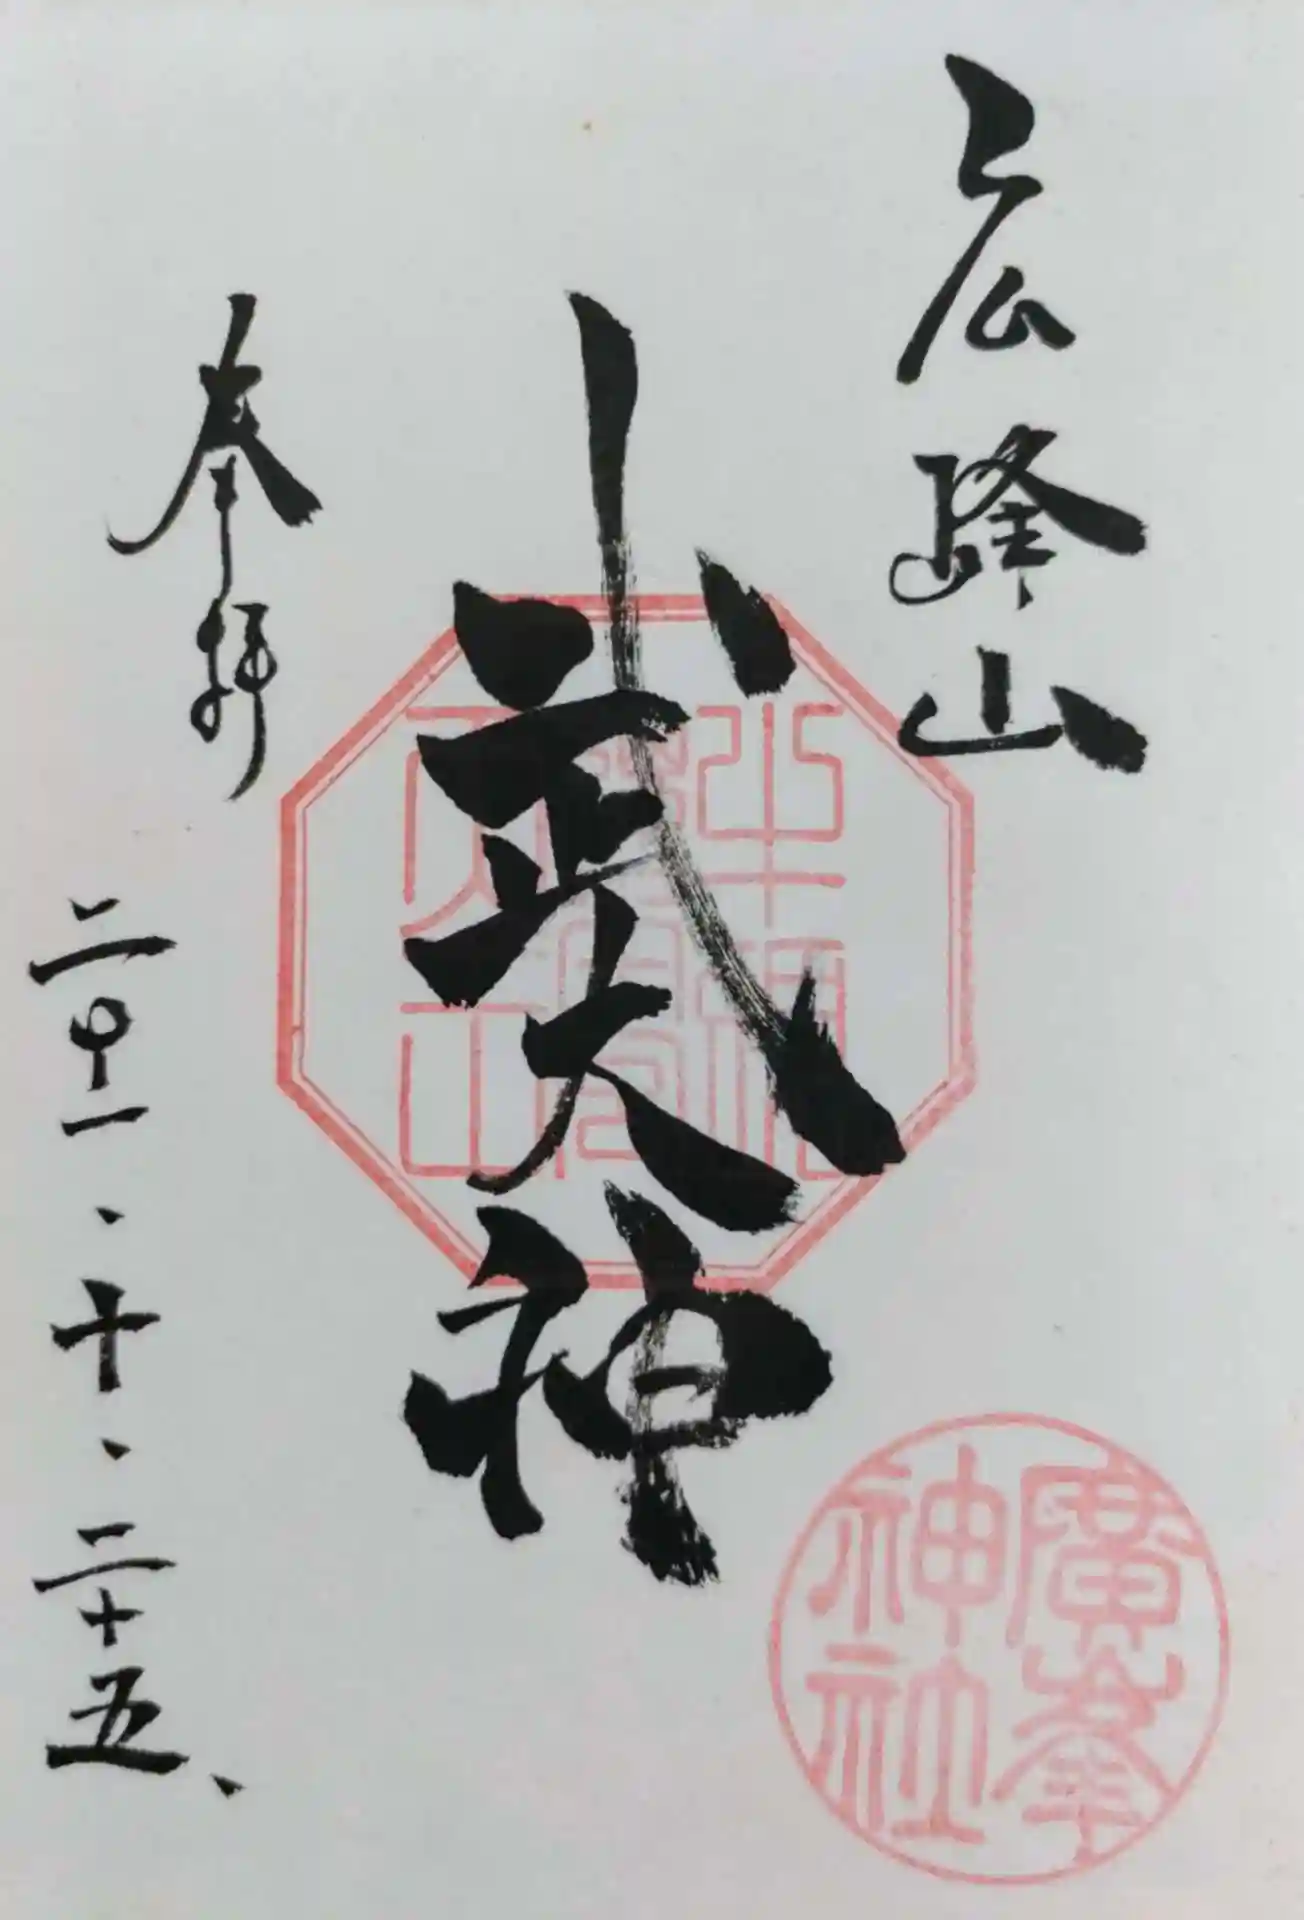 広峰山
武大神
奉拝
二〇十一・十・二十五、
廣峯
神社